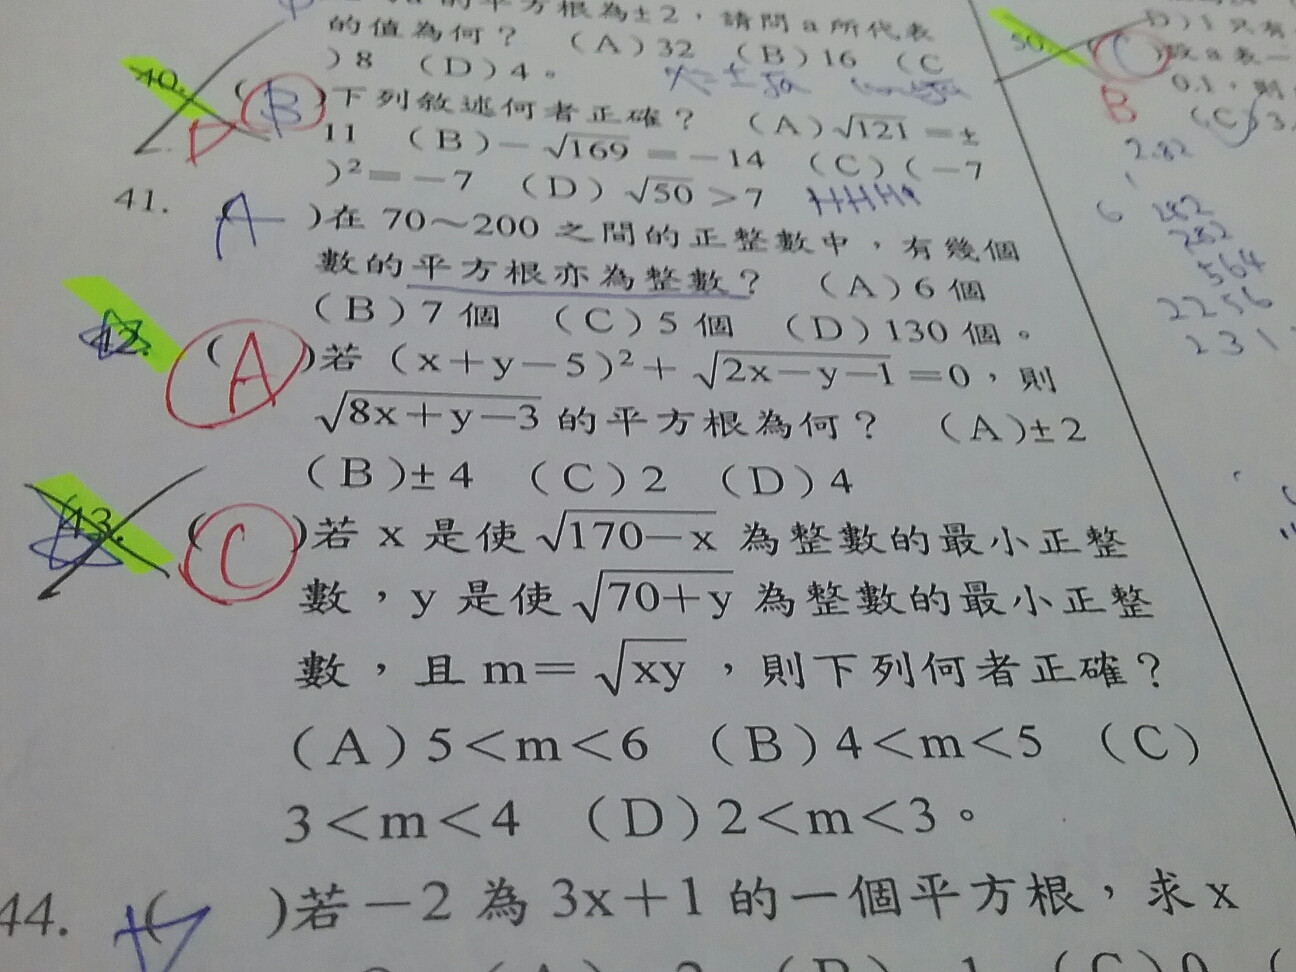 的平方根為±2，請問a所代表
的值為何？ (A)32 (B)16 (C
)8 (D)4。
40. (B)下列敘述何者正確？ (A)√121＝±
D
11 (B)－√169＝－14 (C)(－7
)²＝－7 (D)√50＞7
41. (A)在70～200之間的正整數中，有幾個
數的平方根亦為整數？ (A)6個
(B)7個 (C)5個 (D)130個。
42. (A)若(x＋y－5)²＋√2x－y－1＝0，則
√8x＋y－3的平方根為何？ (A)±2
(B)±4 (C)2 (D)4
43. (C)若x是使√170－x為整數的最小正整
數，y是使√70＋y為整數的最小正整
數，且m＝√xy，則下列何者正確？
(A)5＜m＜6 (B)4＜m＜5 (C)
3＜m＜4 (D)2＜m＜3。
44. ( )若－2為3x＋1的一個平方根，求x
50.
B
2.82
6
282
282
564
2256
231